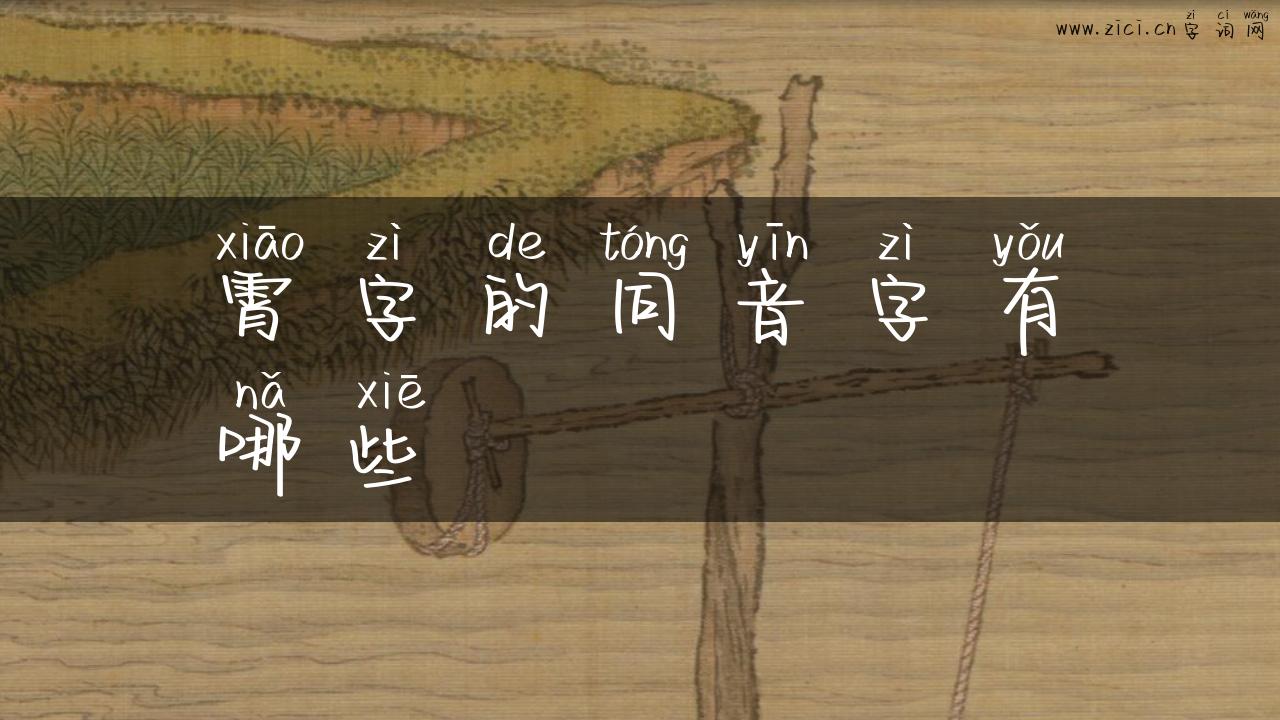 zì cí wǎng
www.zici.cn 字词网
xiāo zì de tóng yīn zì yǒu
霄字的同音字有
nǎ xiē
哪些